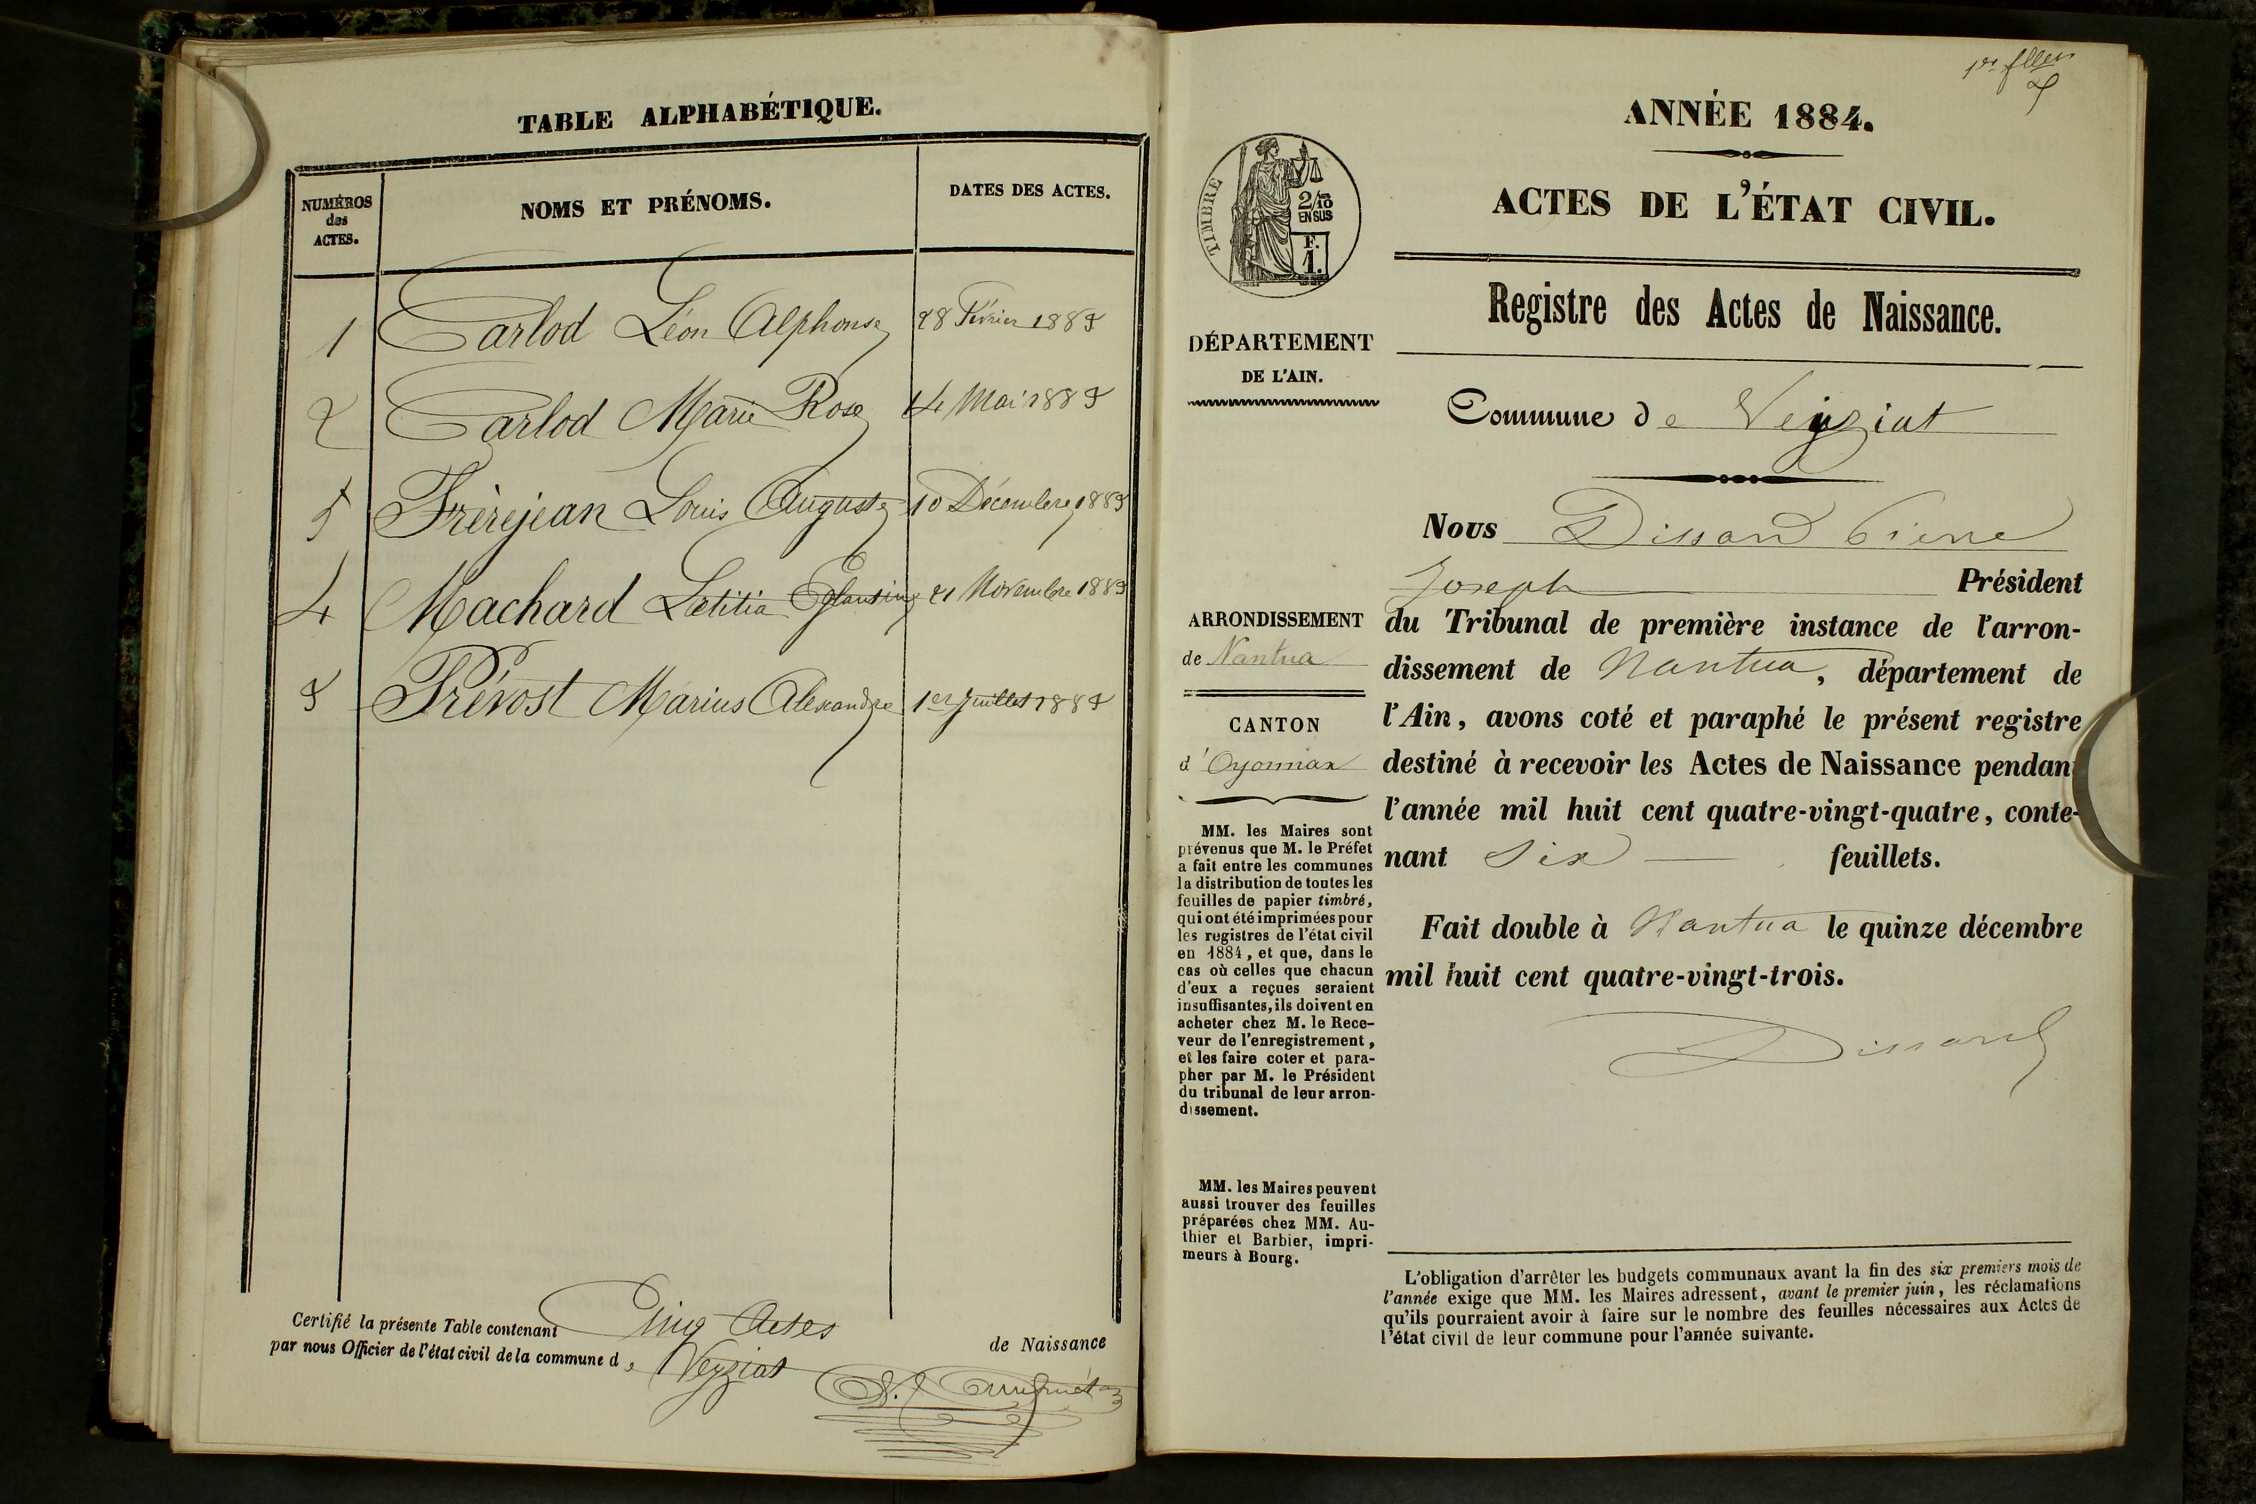 TABLE ALPHABÉTIQUE.
NUMÉROS des ACTES.
NOMS ET PRÉNOMS.
DATES DES ACTES.
1 Carlod Léon Alphonse 28 Février 1883
2 Carlod Marie Rose 14 Mai 1883
5 Frèrejean Louis Auguste 10 Décembre 1883
4 Machard Lætitia Eglantine 21 Novembre 1883
3 Prévost Marius Alexandre 1er Juillet 1883
Certifié la présente Table contenant Cinq Actes de Naissance
par nous Officier de l'état civil de la commune de Veyziat
1er
ANNÉE 1884.
ACTES DE L'ÉTAT CIVIL.
TIMBRE
2/10
EN SUS
F.
1.
Registre des Actes de Naissance.
DÉPARTEMENT
DE L'AIN.
Commune de Veyziat
Nous Dissard Pierre
Joseph Président
ARRONDISSEMENT
de Nantua
CANTON
d'Oyonnax
du Tribunal de première instance de l'arron-
dissement de Nantua, département de
l'Ain, avons coté et paraphé le présent registre
destiné à recevoir les Actes de Naissance pendant
l'année mil huit cent quatre-vingt-quatre, conte-
nant Six feuillets.
Fait double à Nantua le quinze décembre
mil huit cent quatre-vingt-trois.
Dissard
MM. les Maires sont
prévenus que M. le Préfet
a fait entre les communes
la distribution de toutes les
feuilles de papier timbré,
qui ont été imprimées pour
les registres de l'état civil
en 1884, et que, dans le
cas où celles que chacun
d'eux a reçues seraient
insuffisantes, ils doivent en
acheter chez M. le Rece-
veur de l'enregistrement,
et les faire coter et para-
pher par M. le Président
du tribunal de leur arron-
dissement.
MM. les Maires peuvent
aussi trouver des feuilles
préparées chez MM. Au-
thier et Barbier, impri-
meurs à Bourg.
L'obligation d'arrêter les budgets communaux avant la fin des six premiers mois de
l'année exige que MM. les Maires adressent, avant le premier juin, les réclamations
qu'ils pourraient avoir à faire sur le nombre des feuilles nécessaires aux Actes de
l'état civil de leur commune pour l'année suivante.